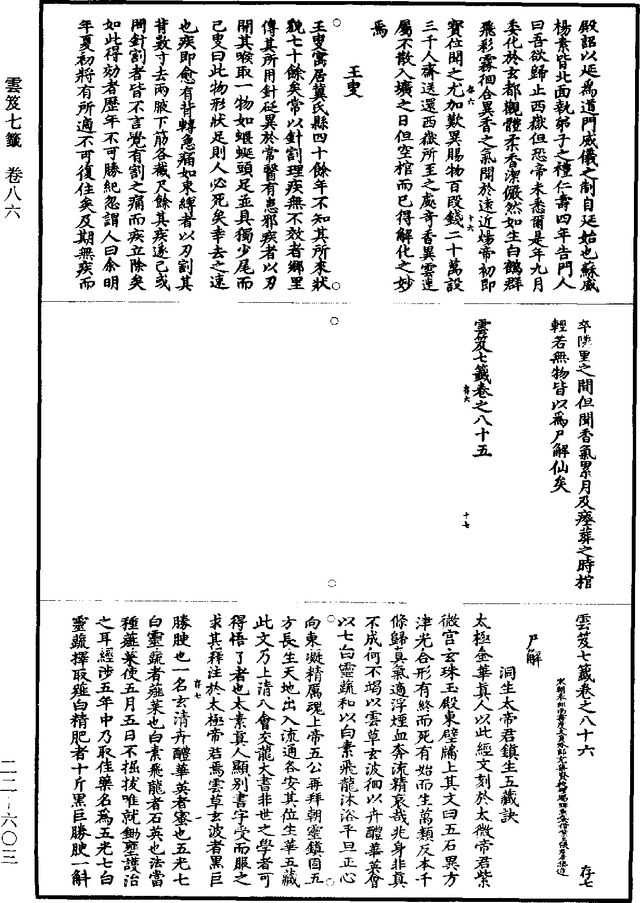 殿詔以延爲道門威儀之制自延始也蘇威
楊素皆北面執弟子之禮仁壽四年告門人
曰吾欲歸止西嶽但恐帝未悉爾是年九月
委化於玄都觀體柔香潔儼然如生白鶴群
飛彩霧徊合異香之氣聞於遠近煬帝初即
寶位聞之尤加歎異賜物百段錢二十萬設
三千人齋送還西嶽所至之處奇香異雲連
屬不散入壙之日但空棺而已得解化之妙
焉
王叟
王叟寓居冀氏縣四十餘年不知其所來狀
貌七十餘矣常以針割理疾無不效者鄉里
傳其所用針砭異於常醫有患邪疾者以刃
開其喉取一物如蝘蜒頭足並具獨少尾而
已叟曰此物形狀足則人必死矣幸去之速
也疾即愈有背轉急痛如束縛者以刃割其
背數寸去兩腋下筋各數尺餘其疾遂已或
開針割者皆不言覺有割之痛而疾立除矣
如此得効者歷年不可勝紀忽謂人曰余明
年夏初將有所適不可復住矣及期無疾而
卒隣里之間但聞香氣累月及瘞葬之時棺
輕若無物皆以爲尸解仙矣
雲笈七籤卷之八十五
雲笈七籤卷之八十六
存七
尸解
洞生太帝君鎮生五藏訣
太極金華真人以此經文刻於太微帝君紫
微宮玄珠玉殿東壁牖上其文曰五石異方
津光合形有終而死有始而生萬類反本千
條歸真氣適浮煙血奔流精哀哉兆身非真
不成何不竭以雲草玄波徊以卉醴華英會
以七白靈蔬和以白素飛龍沐浴平旦正心
向東凝精厲魂上帝五公再拜朝靈鎮固五
方長生天地出入流通各安其位生華五藏
此文乃上清八會交龍大書非世之學者可
得悟了者也太素真人顯別書字受而服之
求其拜注於太極帝君焉雲草玄波者黑巨
勝腴也一名玄清卉醴華英者蜜也五光七
白靈蔬者薤菜也白素飛龍者石英也法當
種薤菜使五月五日不掘拔唯就鋤壅護治
之耳經涉五年中乃取任藥名爲五光七白
靈蔬擇取薤白精肥者十斤黑巨勝腴一斛
雲笈七籤　卷八六
二二-六〇三